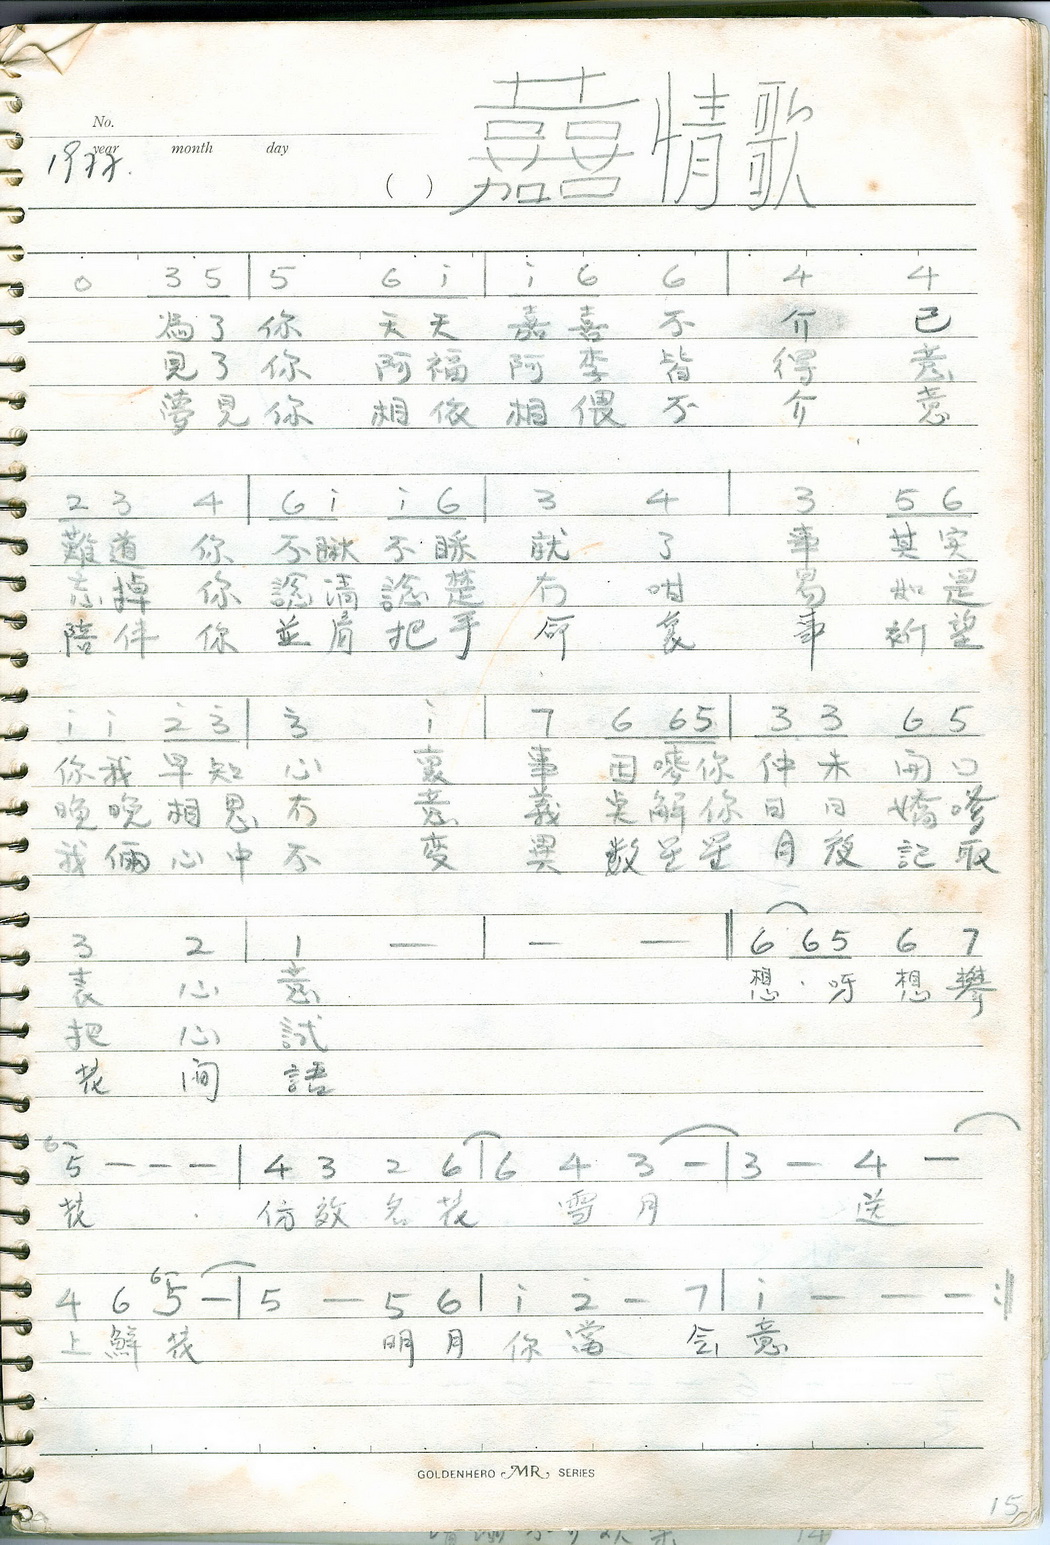 No.
year month day
1977.
( ) 嘉喜情歌
0 3 5 | 5 6 i | i 6 6 | 4 4
為了你 天天 嘉喜不 介 已
見了你 阿福 阿李皆 得 意
夢見你 相依 相偎不 介 意
2 3 4 | 6 i i 6 | 3 4 | 3 5 6
難道 你 不瞅 不睬 就 了 事 其实
忘掉 你 諗清 諗楚 冇 咁 易 如是
陪伴 你 並肩 把手 命 事 祈望
i i 2 3 | 3 i | 7 6 65 | 3 3 6 5
你我 早知 心 裏 事 因嘜你 仲未 開口
晚晚 相思 冇 意 義 点解你 日日 嬌嗲
我倆 心中 不 變 異 数星星 月夜 記取
3 2 | 1 — | — — ‖ 6 65 6 7
表 心 意 想 · 呀 想 攀
把 心 試
花 間 語
6 5 — — — | 4 3 2 6 | 6 4 3 — | 3 — 4 —
花 · 仿效 名花 雪月 送
4 6 6 5 — | 5 — 5 6 | i 2 — 7 | i — — — :‖
上 鮮 花 明月 你 當 会 意
GOLDENHERO MR SERIES
15
14